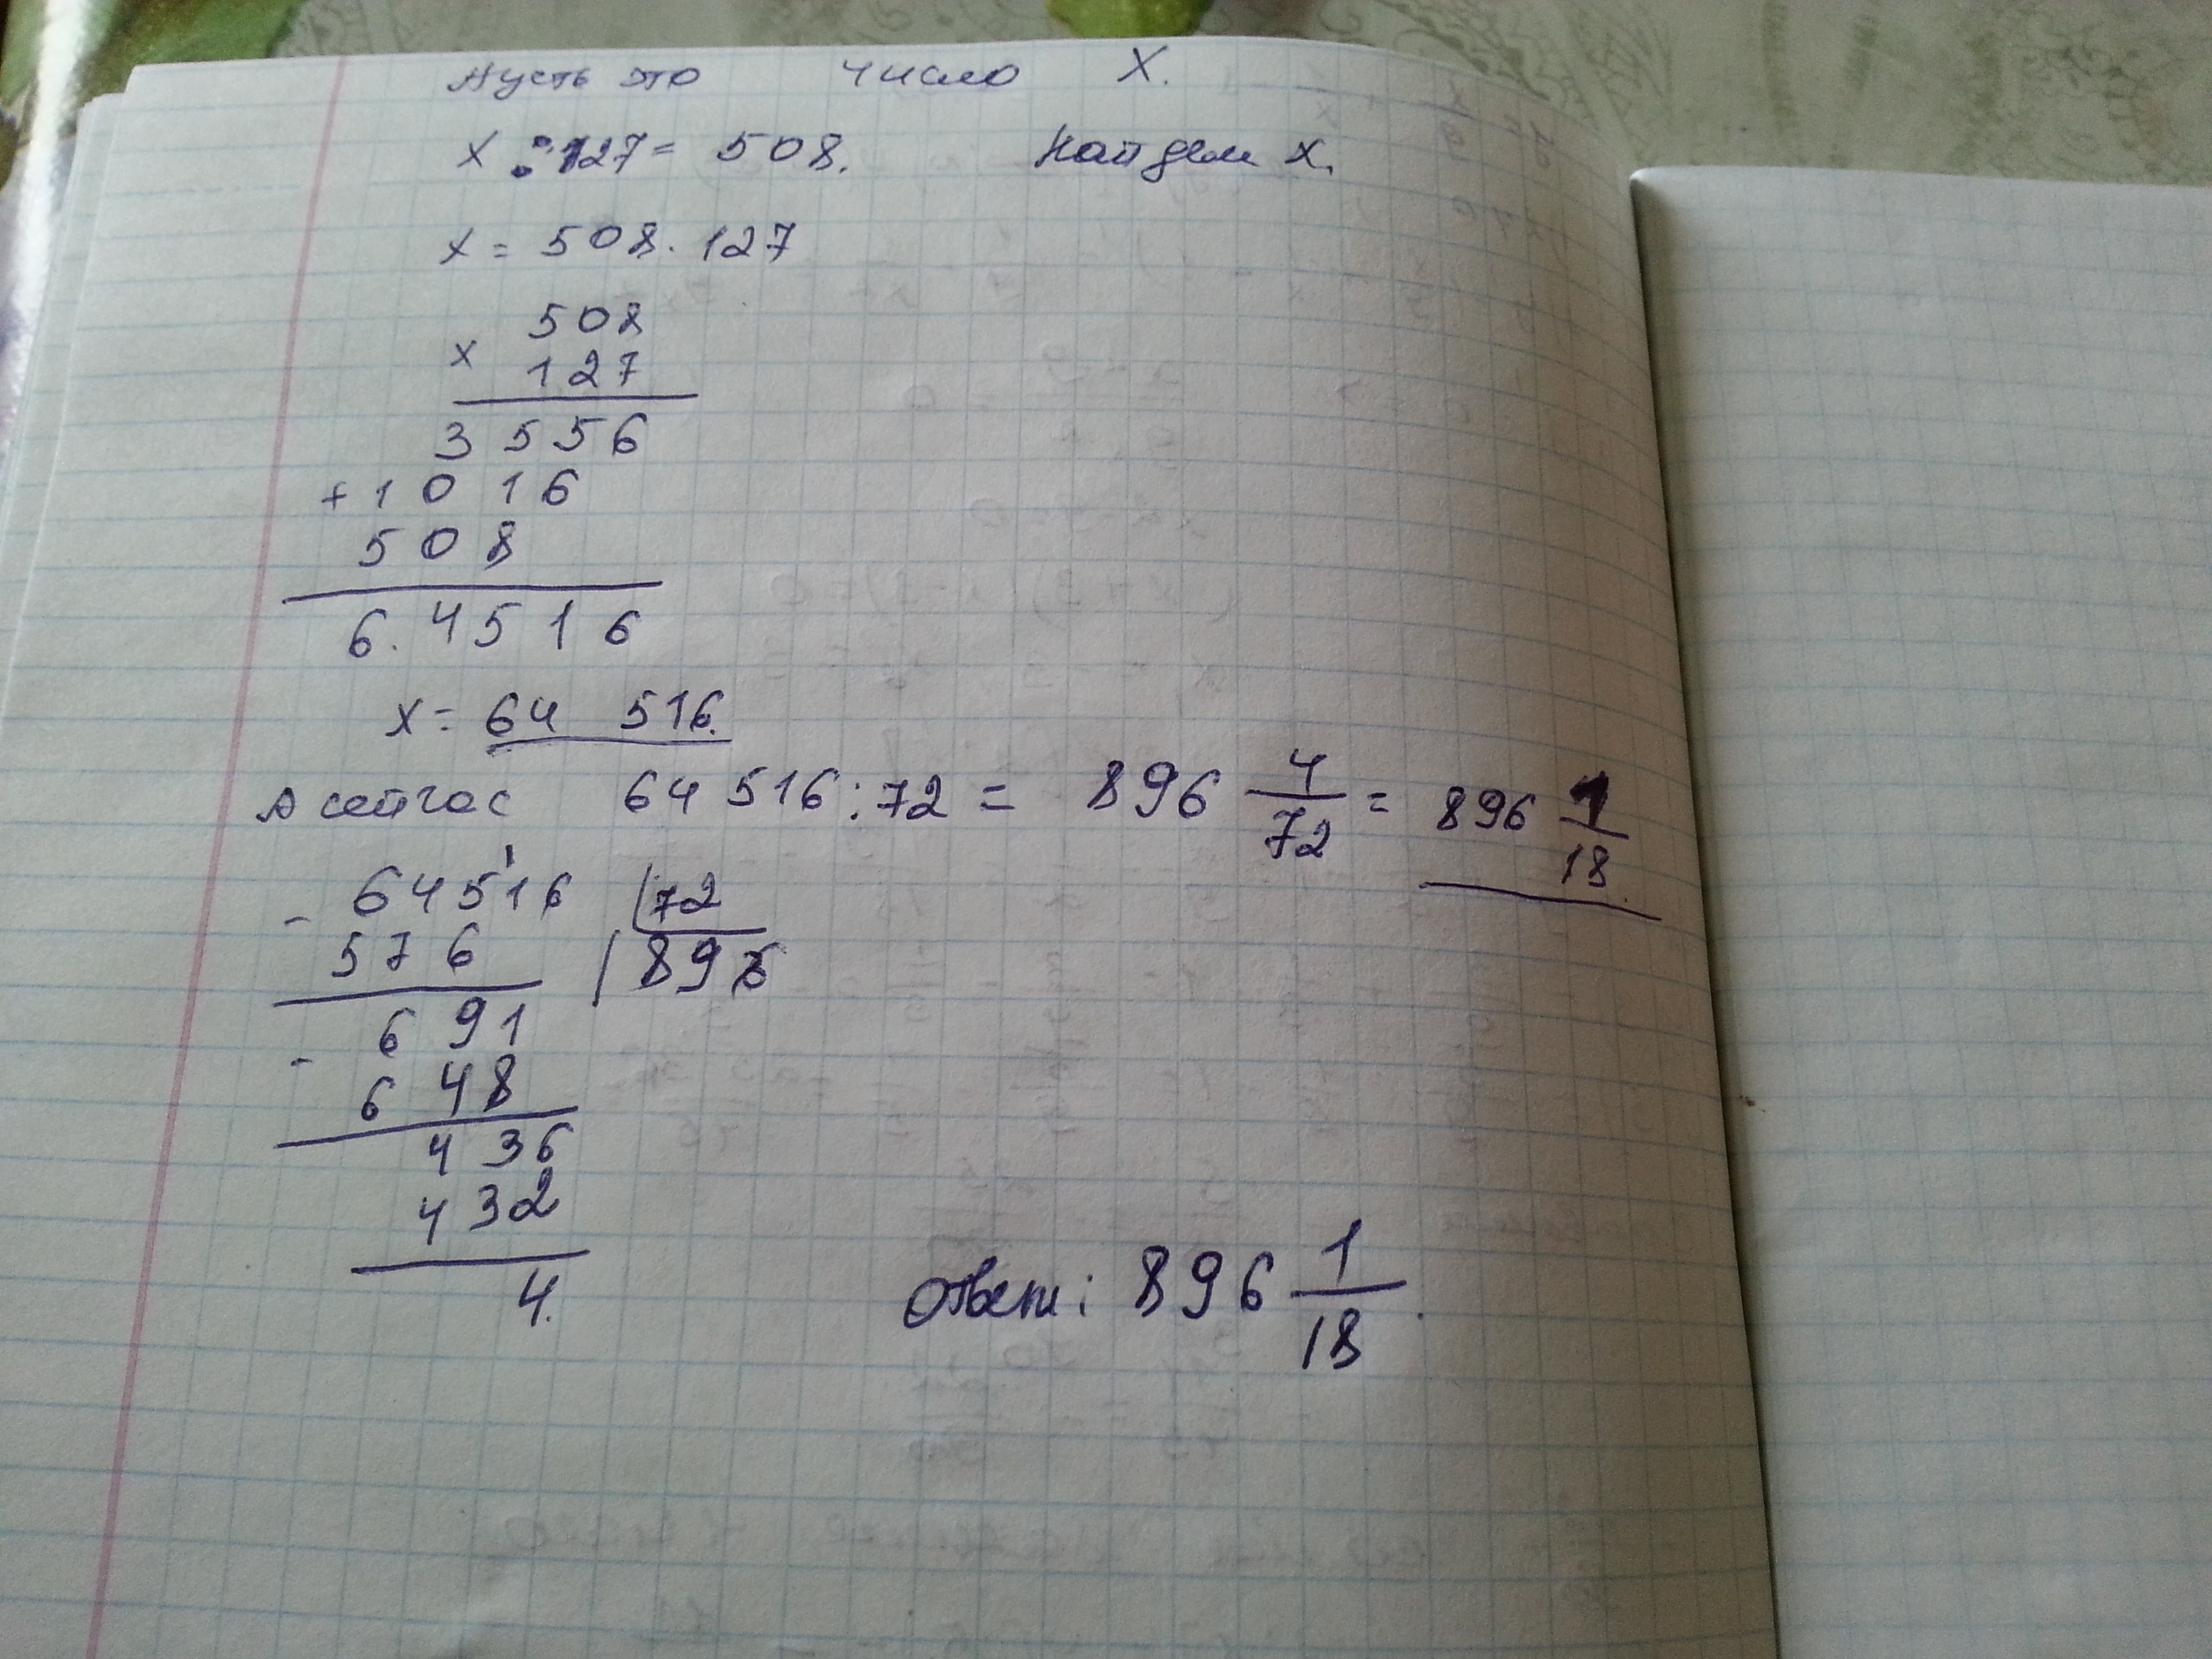 Пусть это число X.
x : 127 = 508. Найдем x.
x = 508 · 127
508
x 127
3556
+ 1016
508
6.4516
x = 64 516.
А сейчас 64 516 : 72 = 896 4/72 = 896 1/18.
- 64516 72
576 896
691
- 648
436
432
4.
Ответ: 896 1/18.